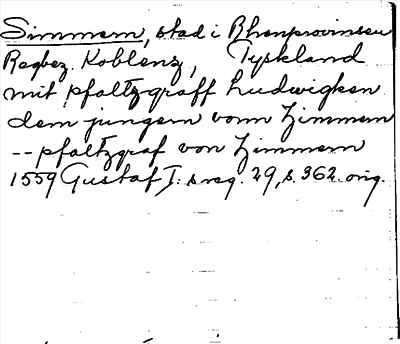 Simmern, stad i Rhenprovinsen
Regbez. Koblenz, Tyskland
mit pfaltzgraff Ludwigken
dem jungern vonn Zimmern
-- pfaltzgraf von Zimmern
1559 Gustaf I:s reg. 29, s. 362. orig.